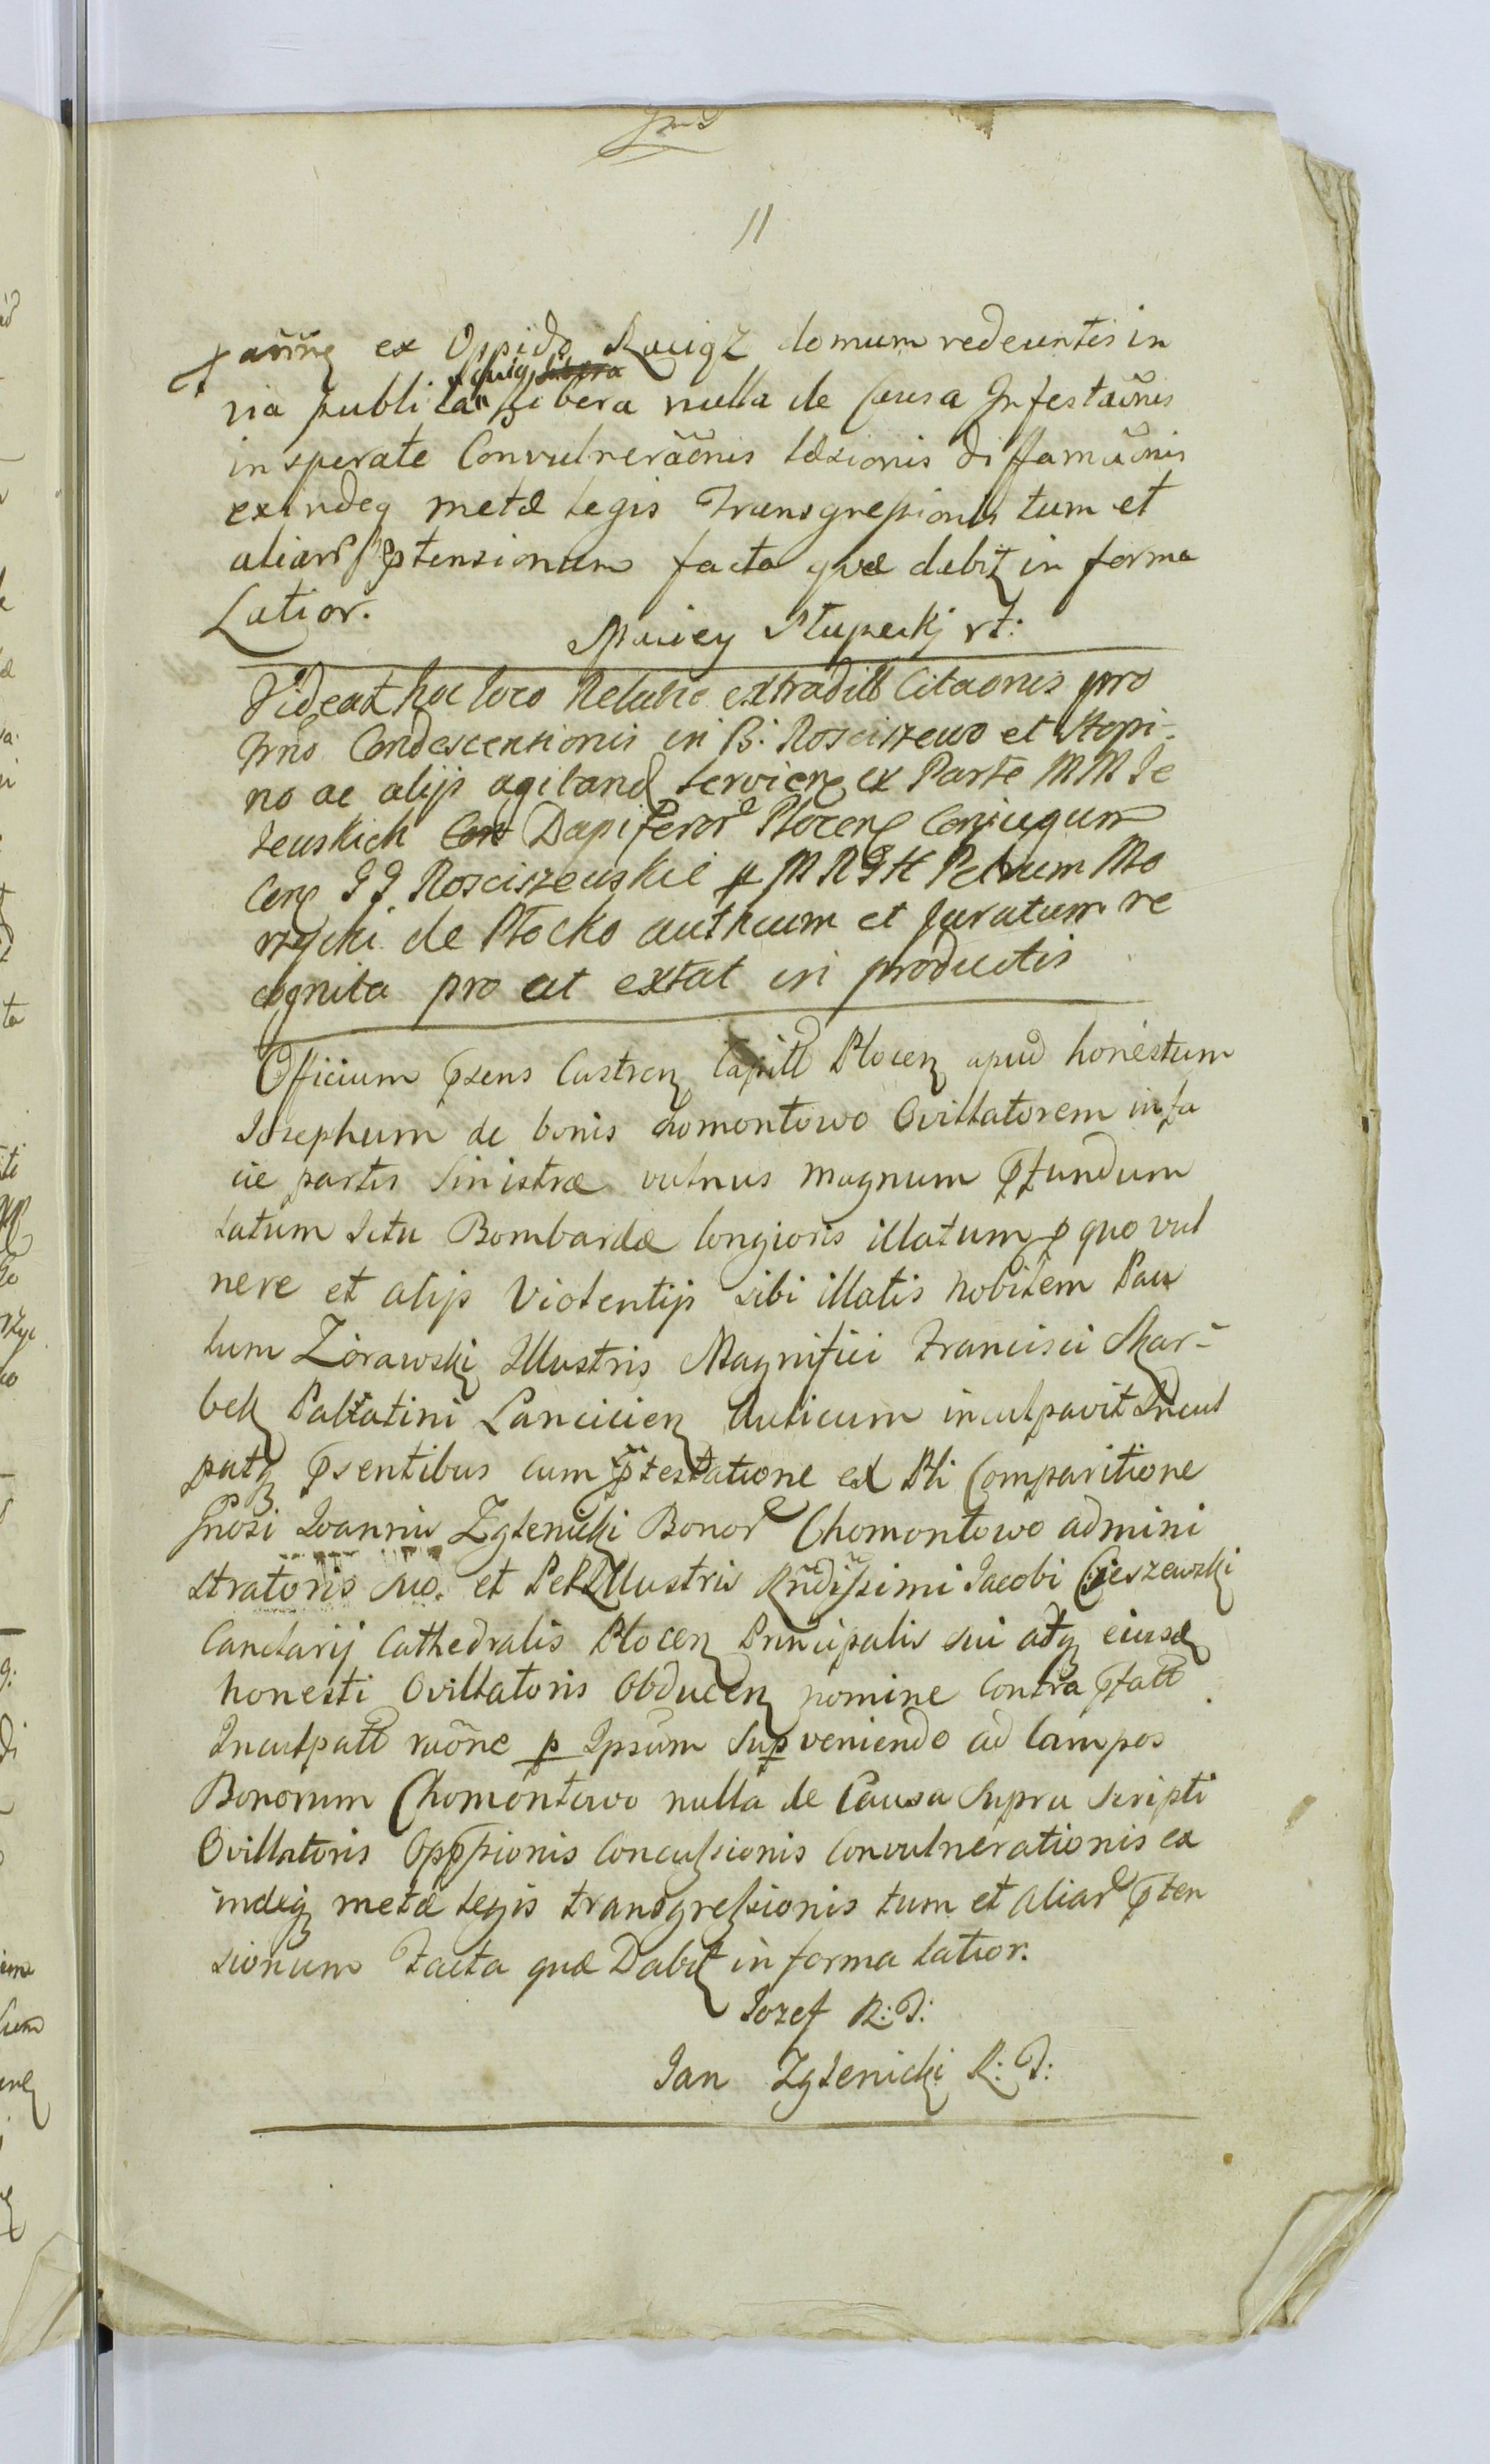 11
ex Oppido Raciąz domum redeuntis in
via publica cuiq libera nulla de Causa Infestaõnis
insperate Convulneraõnis læsionis diffamaõnis
exindeq metæ legis Transgressionis tum et
aliarũ ptensionum facta quæ dabit in forma
Latior.
Maciey Słupecki rt:
Videat hoc loco Relatio extradit Citaonis pro
Trno Condescensionis in B: Rosciszewo et Stopi-
no ac alijs agitand servien ex Parte MM Je
zewskich Dapiferor Płocen Conjugum
Con JJ Rosciszewskie p MRGH Petrum Mo
rzycki de Płocko authcum et Juratum re
cognita pro ut extat in productis
Officium psens Castren Capitl Plocen apud honestum
Josephum de bonis Homontowo Ovillatorem in fa
cie partis sinistræ vulnus magnum pfundum
latum Ictu Bombardæ longioris illatum p quo vul
nere et alijs Violentijs sibi illatis Nobilem Pau
lum Zorawski Illustris Magnifici Francisci Skar-
bek Pallatini Lancicien Aulicum inculpavit Incul
patq psentibus cum ptestatione ex Pti Comparitione
Gnosi Joannis Zglenicki Bonor Chomontowo admini
stratoris suo. et PerIllustris Rndissimi Jacobi Cieszewski
Canclarij Cathedralis Plocen Principalis sui atq eiusd
honesti Ovillatoris Obducen nomine Contra pfatt
Inculpatt raõne p Ipsum Supveniendo ad Campos
Bonorum Chomontowo nulla de Causa Supra scripti
Ovillatoris Oppssionis Concussionis Convulnerationis ex
indeq metæ legis transgressionis tum et aliar pten
sionum Facta quæ Dabit in forma latior.
Jozef R: P:
Jan Zglenicki R: P: